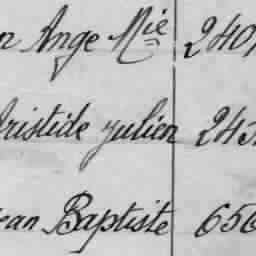 n Ange Mie 240
Aristide Julien 243
ean Baptiste 656